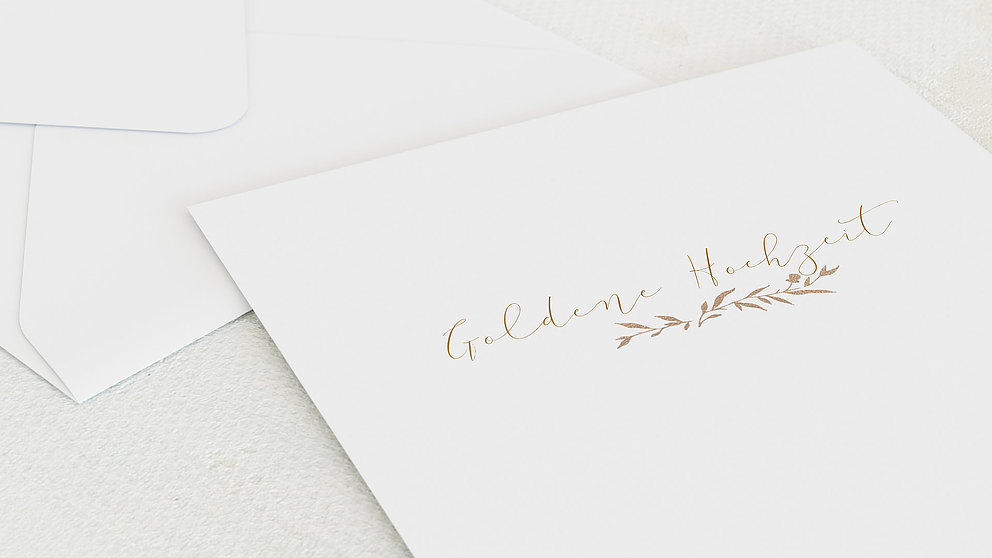 Goldene Hochzeit